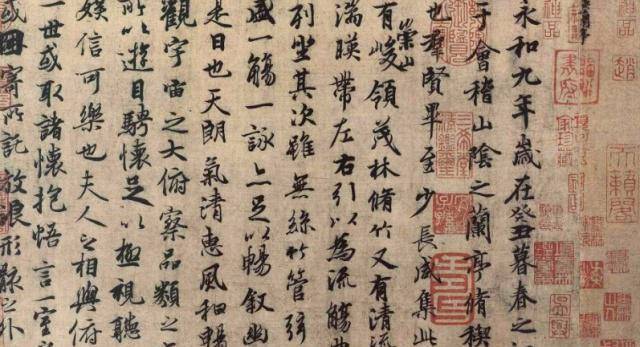 永和九年歲在癸丑暮春之
于會稽山陰之蘭亭脩稧
也群賢畢至少長咸集此
有崇山峻領茂林脩竹又有清流
湍暎帶左右引以為流觴曲
列坐其次雖無絲竹管弦
盛一觴一詠亦足以暢敘幽
是日也天朗氣清惠風和暢
觀宇宙之大俯察品類之
所以遊目騁懷足以極視聽
娛信可樂也夫人之相與俯
一世或取諸懷抱悟言一室
或因寄所託放浪形骸之外